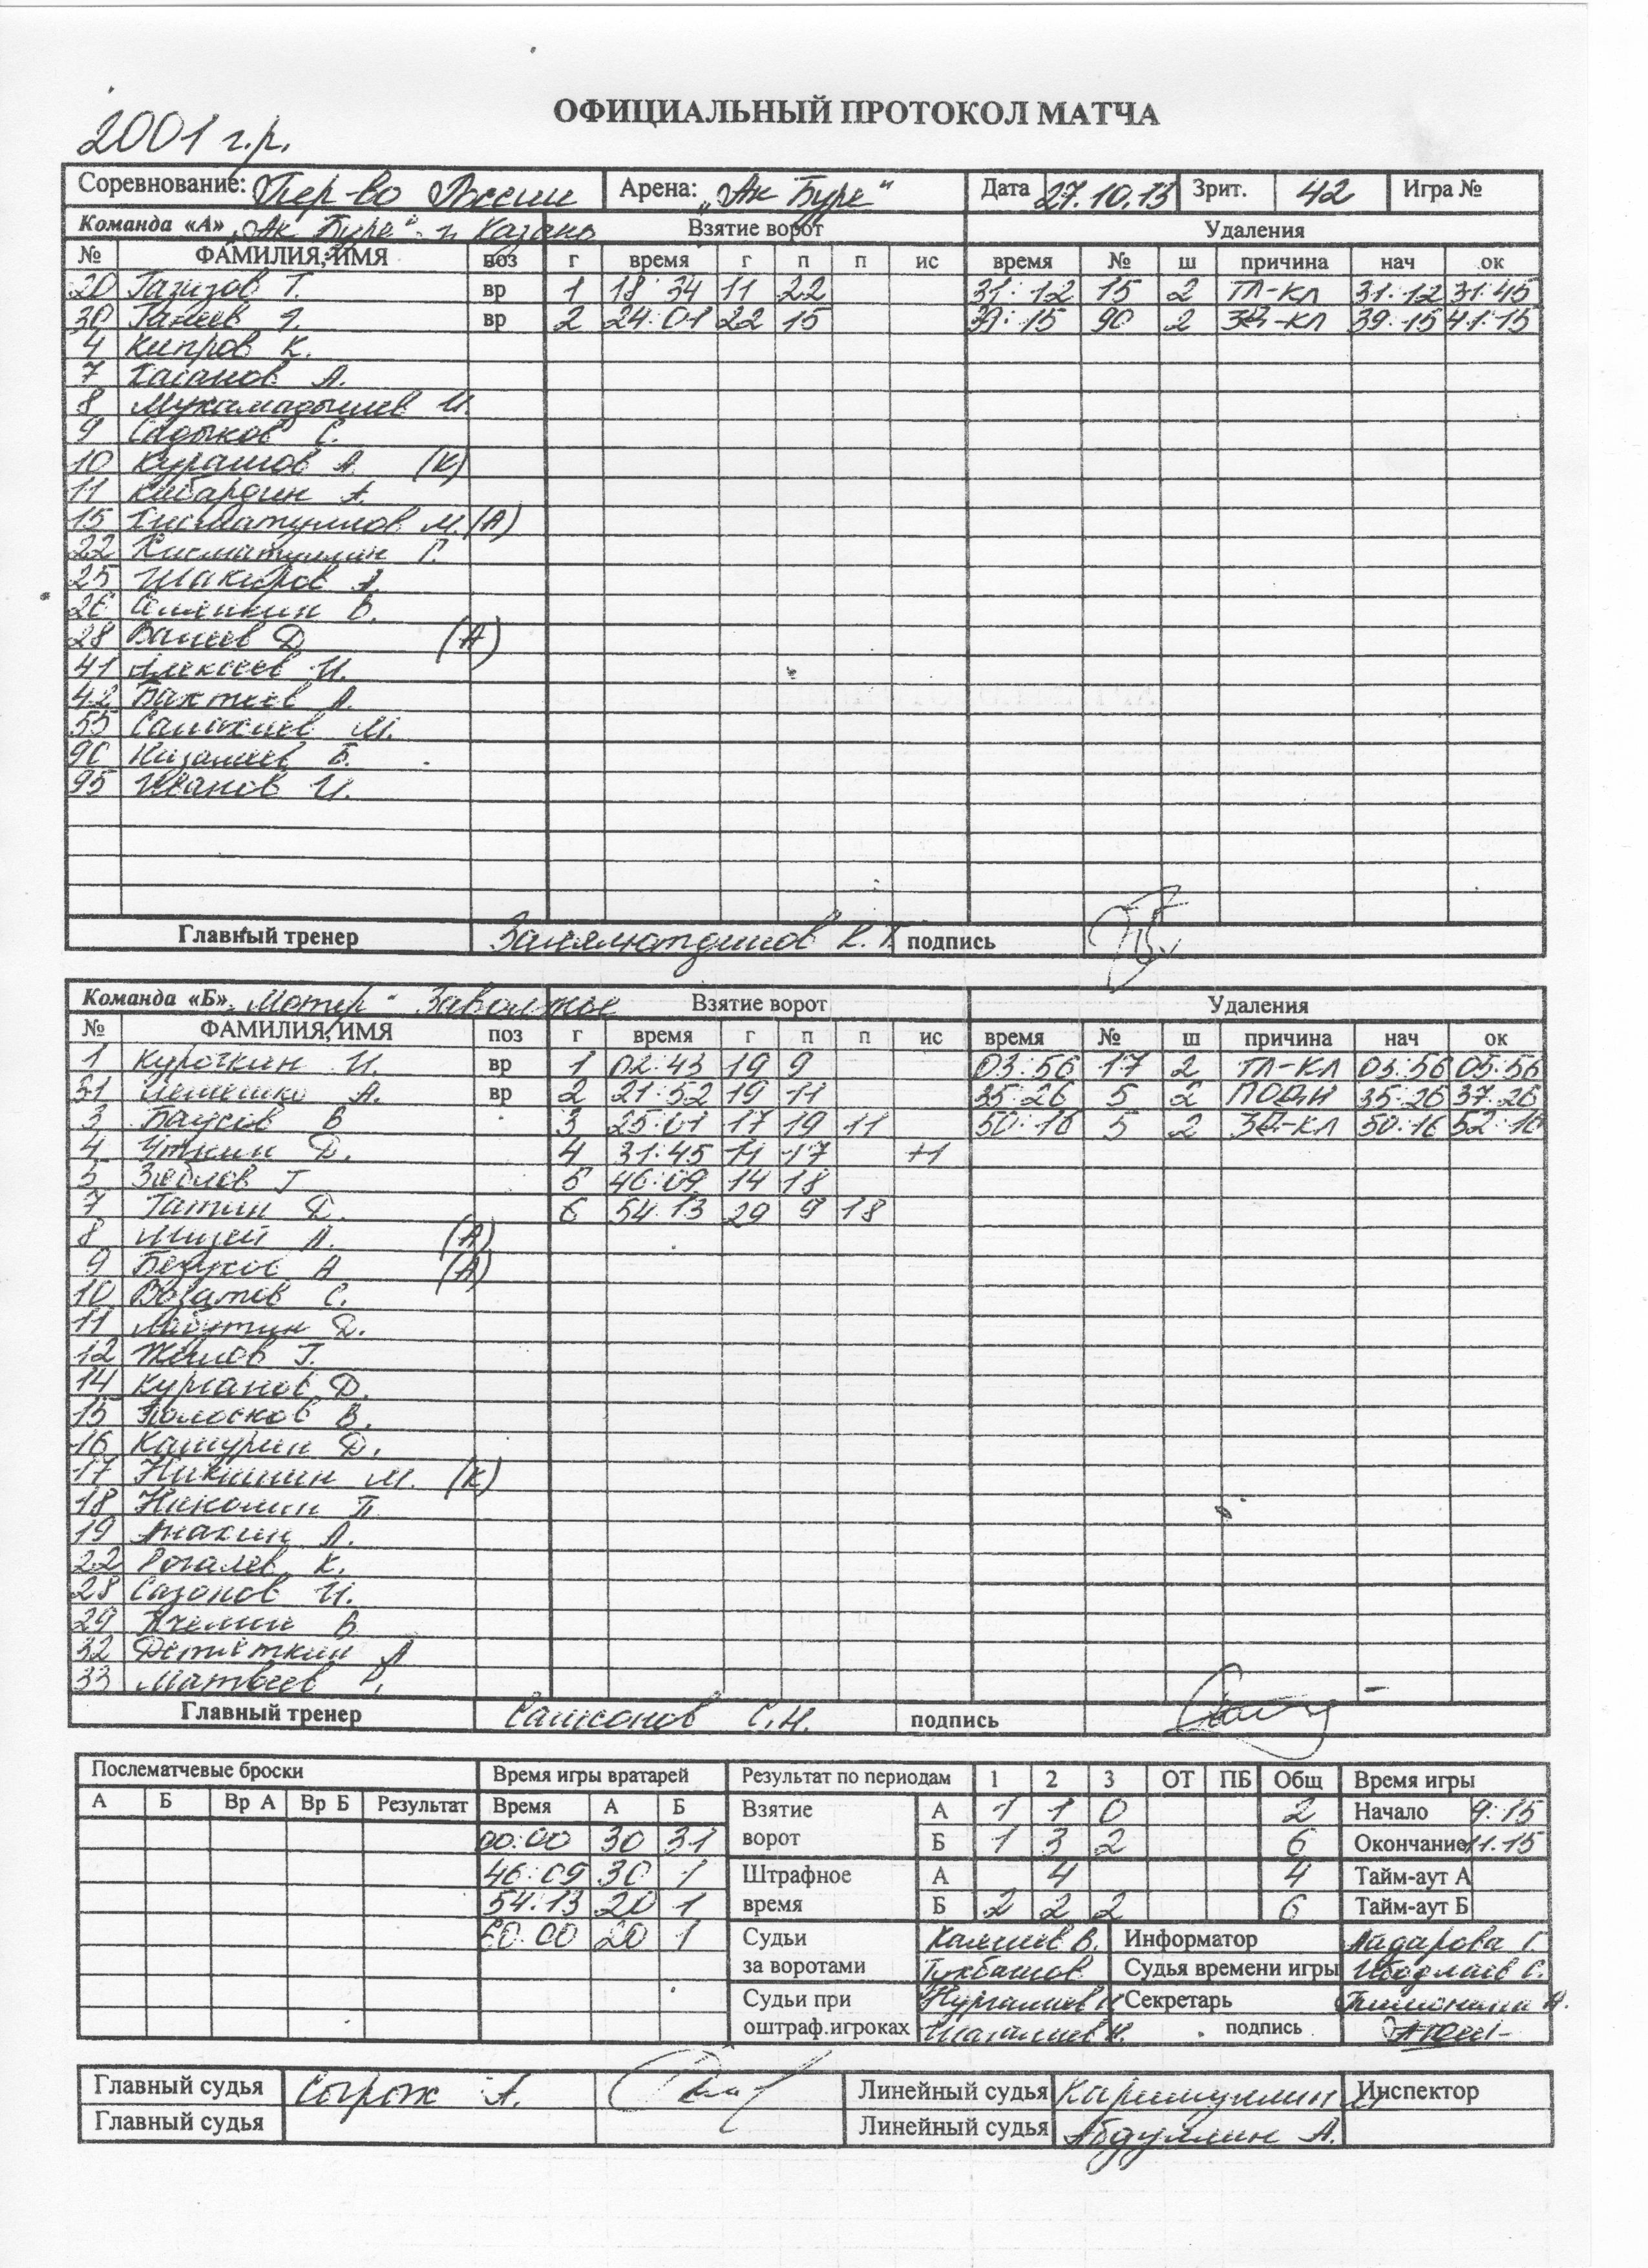 ОФИЦИАЛЬНЫЙ ПРОТОКОЛ МАТЧА
2001 г.р.
Соревнование: Пер-во России Арена: „Ак Буре" Дата 27.10.13 Зрит. 42 Игра №
Команда «А» „Ак Буре" г. Казань Взятие ворот Удаления
№ ФАМИЛИЯ, ИМЯ поз г время г п п ис время № ш причина нач ок
20 Газизов Т. вр 1 18:34 11 22 31:12 15 2 ТЛ-КЛ 31:12 31:45
30 Ганеев вр 2 24:01 22 15 39:15 90 2 ЗД-КЛ 39:15 41:15
4 Кипров К.
7 Хасанов А.
8 Мухамадышев И.
9 Садыков С.
10 Курашов А. (К)
11 Кибардин А.
15 Хисматуллов М. (А)
22 Хисматуллин Г.
25 Шакиров А.
26 В.
28 Валеев Д (А)
41 Алексеев И.
42 Бахтеев А.
55 Салахиев М.
90 Низамеев Б.
95 Иванов И.
Главный тренер Залялютдинов Р. Т. подпись
Команда «Б» „Мотор" Заволжье Взятие ворот Удаления
№ ФАМИЛИЯ, ИМЯ поз г время г п п ис время № ш причина нач ок
1 Курочкин И. вр 1 02:43 19 9 03:56 17 2 ТЛ-КЛ 03:56 05:56
31 А. вр 2 21:52 19 11 35:26 5 2 ПОДН 35:26 37:26
3 Баусов В 3 25:01 17 19 11 50:16 5 2 ЗД-КЛ 50:16 52:16
4 Уткин Д. 4 31:45 11 17 +1
5 Г 5 46:09 14 18
7 Татин Д. 6 54:13 29 9 18
8 А. (А)
9 Безухов А (А)
10 С.
11 Лабутин Д.
12 Жеглов Г.
14 Курганов Д.
15 Полосков В.
16 Кашурин Д.
17 Никишин М. (К)
18 Николин П
19 Анахин А.
22 Рогалев К.
28 Сазонов И.
29 Пчелин В
32 Детьёткин А
33 Матвеев Р.
Главный тренер Самсонов С.Н. подпись
Послематчевые броски Время игры вратарей Результат по периодам 1 2 3 ОТ ПБ Общ Время игры
А Б Вр А Вр Б Результат Время А Б Взятие А 1 1 0 2 Начало 9:15
00:00 30 31 ворот Б 1 3 2 6 Окончание 11.15
46:09 30 1 Штрафное А 4 4 Тайм-аут А
54:13 20 1 время Б 2 2 2 6 Тайм-аут Б
60:00 20 1 Судьи Калиев В. Информатор Айдарова Г.
за воротами Тухбатов Судья времени игры С.
Судьи при Нургалиев И Секретарь Тимонина
оштраф.игроках Шагалиев И. подпись
Главный судья Сырож А. Линейный судья Каримуллин И Инспектор
Главный судья Линейный судья Абдуллин А.